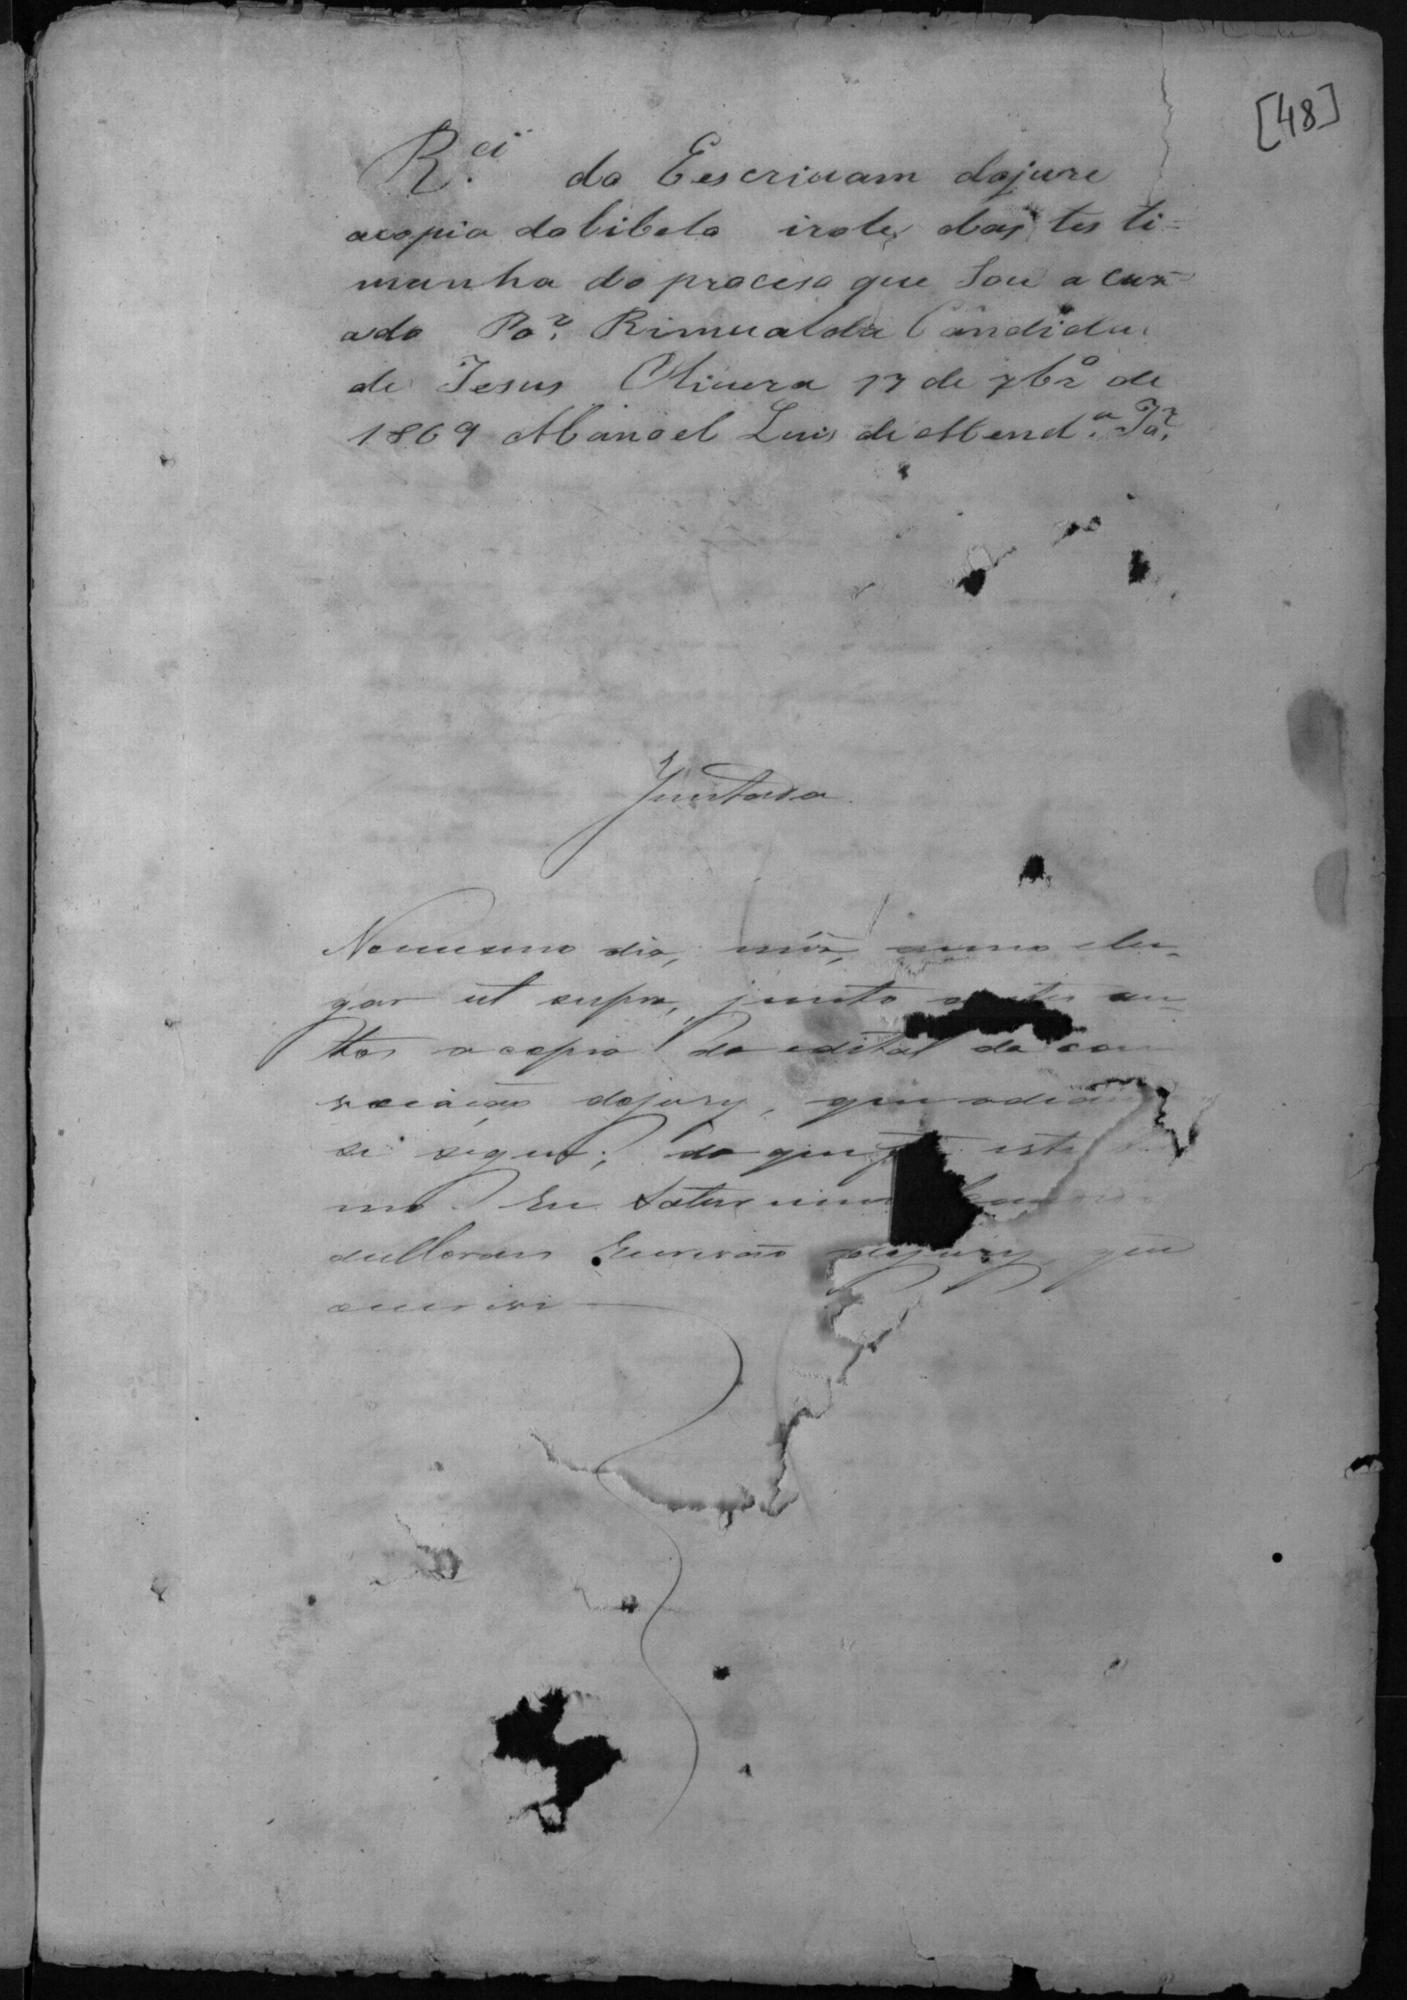 [48]
R.ci do Eescrivam dojure
acopia dolibelo irole das testi=
munha do proceso que Sou a cuz
ado Por. Rimualda Candida
de Jesus Olivera 17 de 7bro de
1869 Manoel Luis de Mend.ça Jor.
Juntada
Nomesmo dia, mez, anno elu-
gar ut supra, junto a estes au-
tos a copia do edital da con
vocação dojury, que adiante
se segue; do que faço este ter
mo. Eu Saturnino
Escrivão dojury que
escrevi